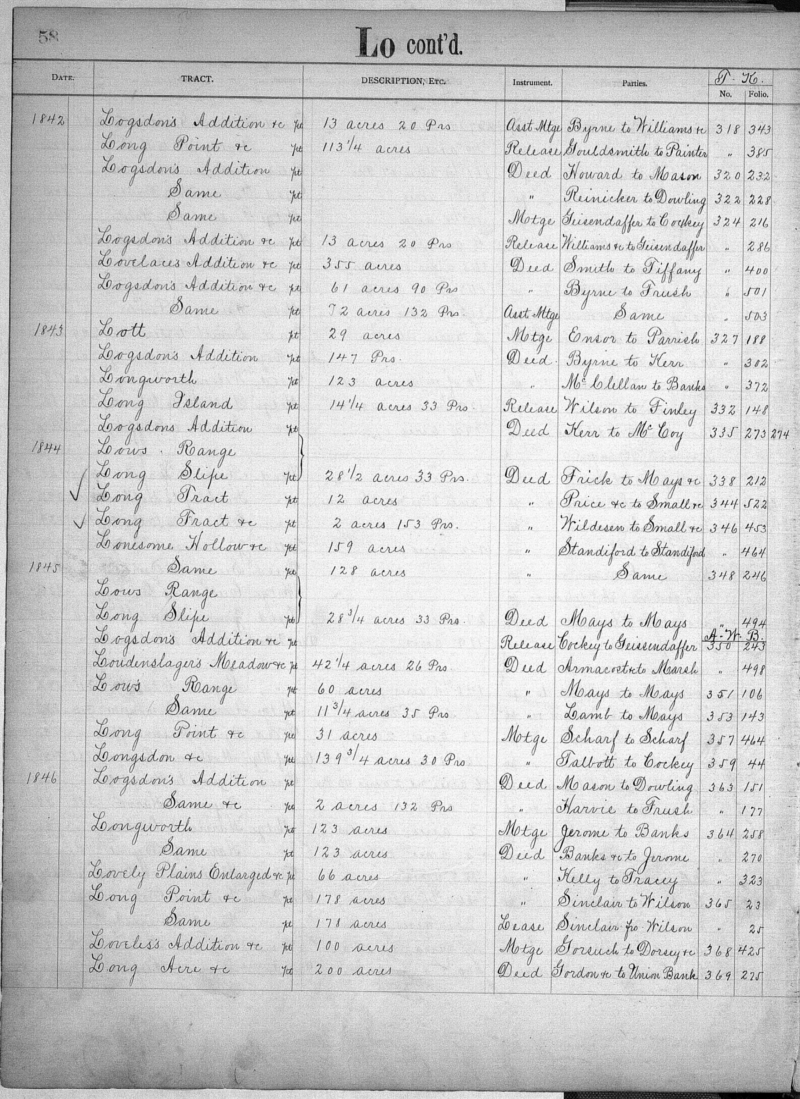 58
Lo cont'd.
DATE. TRACT. DESCRIPTION, ETC. Instrument. Parties. T. K.
No. Folio.
1842 Logsdon's Addition &c pt 13 acres 20 Prs Asst Mtge Byrne to Williams &c 318 343
Long Point &c pt 113 1/4 acres Release Gouldsmith to Painter " 385
Logsdon's Addition pt Deed Howard to Mason 320 232
Same pt " Reinicker to Dowling 322 228
Same pt Mtge Geisendaffer to Cockey 324 216
Logsdon's Addition &c pt 13 acres 20 Prs Release Williams &c to Geisendaffer " 286
Lovelace's Addition &c pt 355 acres Deed Smith to Tiffany " 400
Logsdon's Addition &c pt 61 acres 90 Prs " Byrne to Frush " 501
Same pt 72 acres 132 Prs Asst Mtge Same " 503
1843 Lott pt 29 acres Mtge Ensor to Parrish 327 188
Logsdon's Addition pt 147 Prs. Deed Byrne to Kerr " 302
Longworth pt 123 acres " McClellan to Banks " 372
Long Island pt 14 1/4 acres 33 Prs Release Wilson to Finley 332 148
Logsdon's Addition pt Deed Kerr to McCoy 335 273 274
1844 Lows Range
Long Slipe pt 28 1/2 acres 33 Prs. Deed Frick to Mays &c 338 212
✓ Long Tract pt 12 acres " Price &c to Small &c 344 522
✓ Long Tract &c pt 2 acres 153 Prs. " Wildesen to Small &c 346 453
Lonesome Hollow &c pt 159 acres " Standiford to Standiford " 464
1845 Same pt 128 acres " Same 348 246
Lows Range
Long Slipe pt 28 3/4 acres 33 Prs. Deed Mays to Mays " 494
A. W. B.
Logsdon's Addition &c pt Release Cockey to Geissendaffer 350 243
Loudenslager's Meadow &c pt 42 1/4 acres 26 Prs Deed Armacost &c to Marsh " 498
Lows Range pt 60 acres " Mays to Mays 351 106
Same pt 11 3/4 acres 35 Prs " Lamb to Mays 353 143
Long Point &c pt 31 acres Mtge Scharf to Scharf 357 464
Longsdon &c pt 139 3/4 acres 30 Prs " Talbott to Cockey 359 44
1846 Logsdon's Addition pt Deed Mason to Dowling 363 151
Same &c pt 2 acres 132 Prs " Harvie to Frush " 177
Longworth pt 123 acres Mtge Jerome to Banks 364 258
Same pt 123 acres Deed Banks &c to Jerome " 270
Lovely Plains Enlarged &c pt 66 acres " Kelly to Tracey " 323
Long Point &c pt 178 acres " Sinclair to Wilson 365 23
Same pt 178 acres Lease Sinclair fro Wilson " 25
Loveless's Addition &c pt 100 acres Mtge Gorsuch to Dorsey &c 368 425
Long Acre &c pt 200 acres Deed Gordon &c to Union Bank 369 275